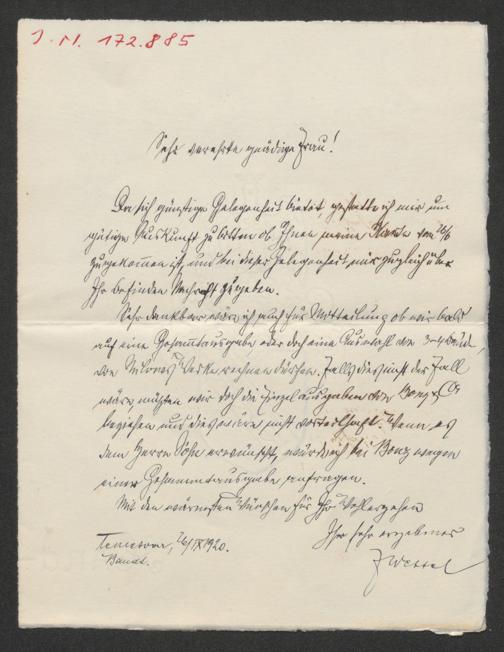 J. N. 172.885
Sehr verehrte gnädige Frau!
Da sich günstige Gelegenheit bietet, gestatte ich mir um
gütige Auskunft zu bitten ob Ihnen meine Karte vom
zugekommen ist, und bei dieser Gelegenheit mir zugleich über
Ihr Befinden Nachricht zu geben.
Sehr dankbar wäre ich auch für Mitteilung ob wir bald
auf eine Gesamtausgabe oder doch eine Auswahl von 3-4 Bänden,
von Werke rechnen dürfen. Falls dies nicht der Fall
wäre, müßten wir doch die Einzelausgaben von Bonz & Co
beziehen und dies wäre nicht vorteilhaft. Wenn es
dem Herrn Sohn erwünscht, würde ich bei Bonz wegen
einer Gesammtausgabe anfragen.
Mit den wärmsten Wünschen für Ihr Wohlergehen
Ihr sehr ergebener
Temesvar, 26/IX 1920.
Banat.